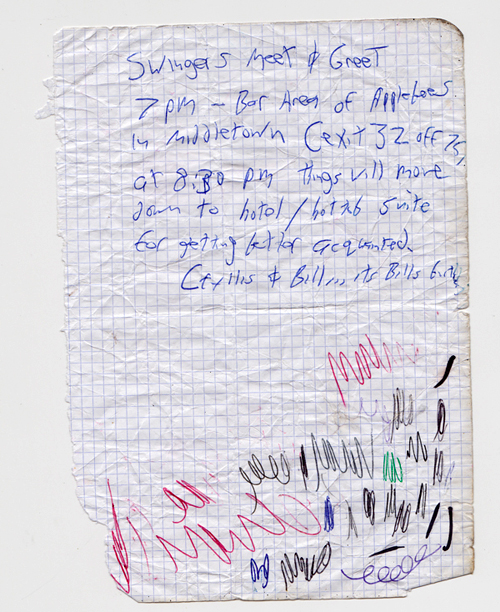 Swingers Meet & Greet
7 pm - Bar Area of Applebees
in Middletown (exit 32 off 75,
at 8:30 pm things will move
down to hotel/hot tub suite
for getting better acquainted.
& Bill,,, its Bills